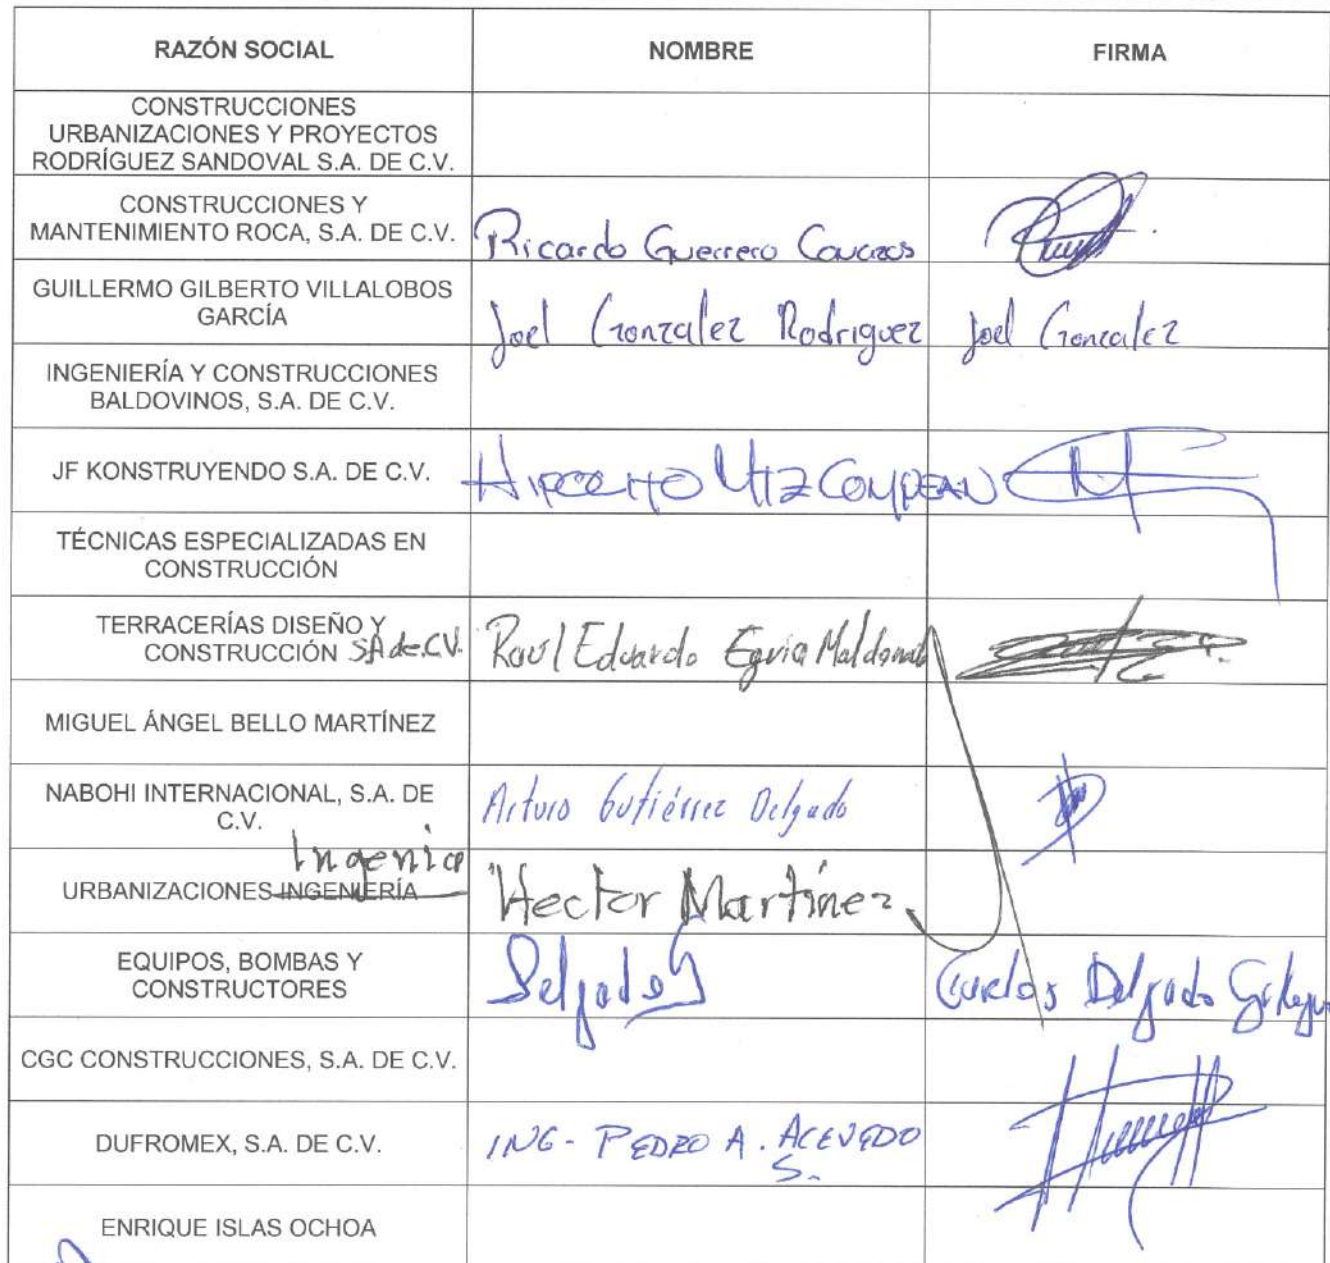 RAZÓN SOCIAL NOMBRE FIRMA
CONSTRUCCIONES
URBANIZACIONES Y PROYECTOS
RODRÍGUEZ SANDOVAL S.A. DE C.V.
CONSTRUCCIONES Y
MANTENIMIENTO ROCA, S.A. DE C.V. Ricardo Guerrero Cavazos
GUILLERMO GILBERTO VILLALOBOS
GARCÍA Joel Gonzalez Rodriguez Joel Gonzalez
INGENIERÍA Y CONSTRUCCIONES
BALDOVINOS, S.A. DE C.V.
JF KONSTRUYENDO S.A. DE C.V. HIPOLITO MTZ COMPEAN
TÉCNICAS ESPECIALIZADAS EN
CONSTRUCCIÓN
TERRACERÍAS DISEÑO Y
CONSTRUCCIÓN SA de C.V. Raul Eduardo Eguia Maldonado
MIGUEL ÁNGEL BELLO MARTÍNEZ
NABOHI INTERNACIONAL, S.A. DE
C.V. Arturo Gutiérrez Delgado
Ingenia
URBANIZACIONES INGENIERÍA Hector Martínez
EQUIPOS, BOMBAS Y
CONSTRUCTORES Delgado G Carlos Delgado
CGC CONSTRUCCIONES, S.A. DE C.V.
DUFROMEX, S.A. DE C.V. ING- PEDRO A. ACEVEDO
S.
ENRIQUE ISLAS OCHOA